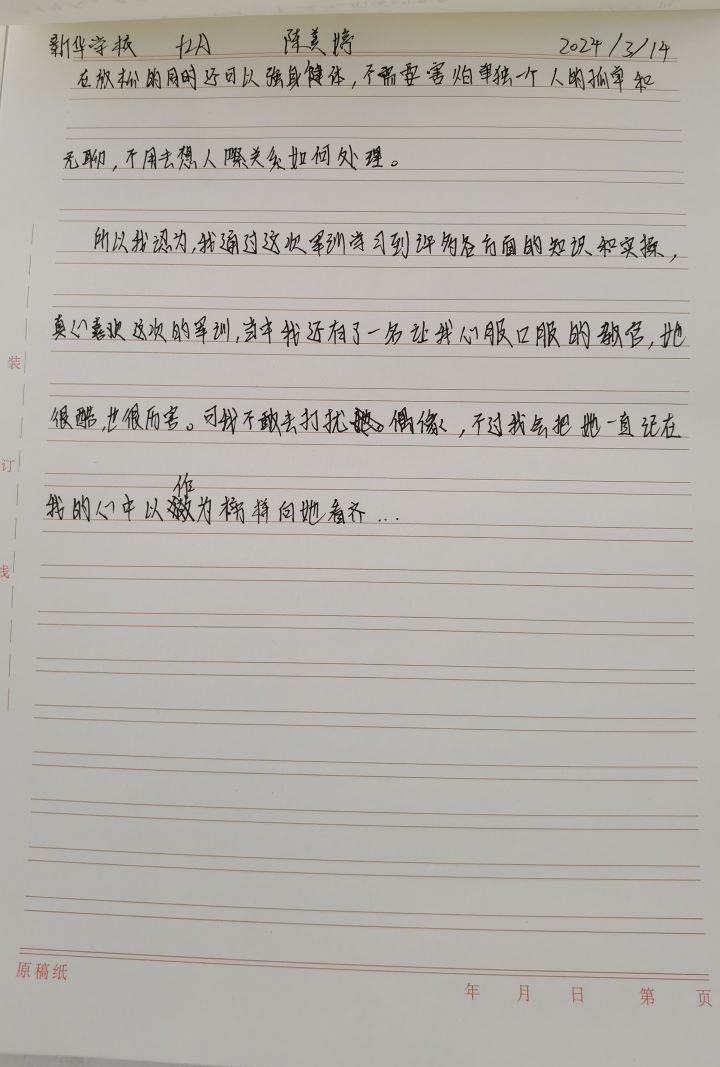 新华学校 九A 陈美婷 2024/3/14
在放松的同时还可以强身健体，不需要害怕单独一个人的孤单和
无聊，不用去想人际关系如何处理。
所以我认为，我通过这次军训学习到许多各方面的知识和实操，
真心喜欢这次的军训，当中我还有了一名让我心服口服的教官，她
很酷，也很厉害。可我不敢去打扰偶像，不过我会把她一直记在
我的心中以作为榜样向她看齐...
装
订
线
原稿纸
年 月 日 第 页